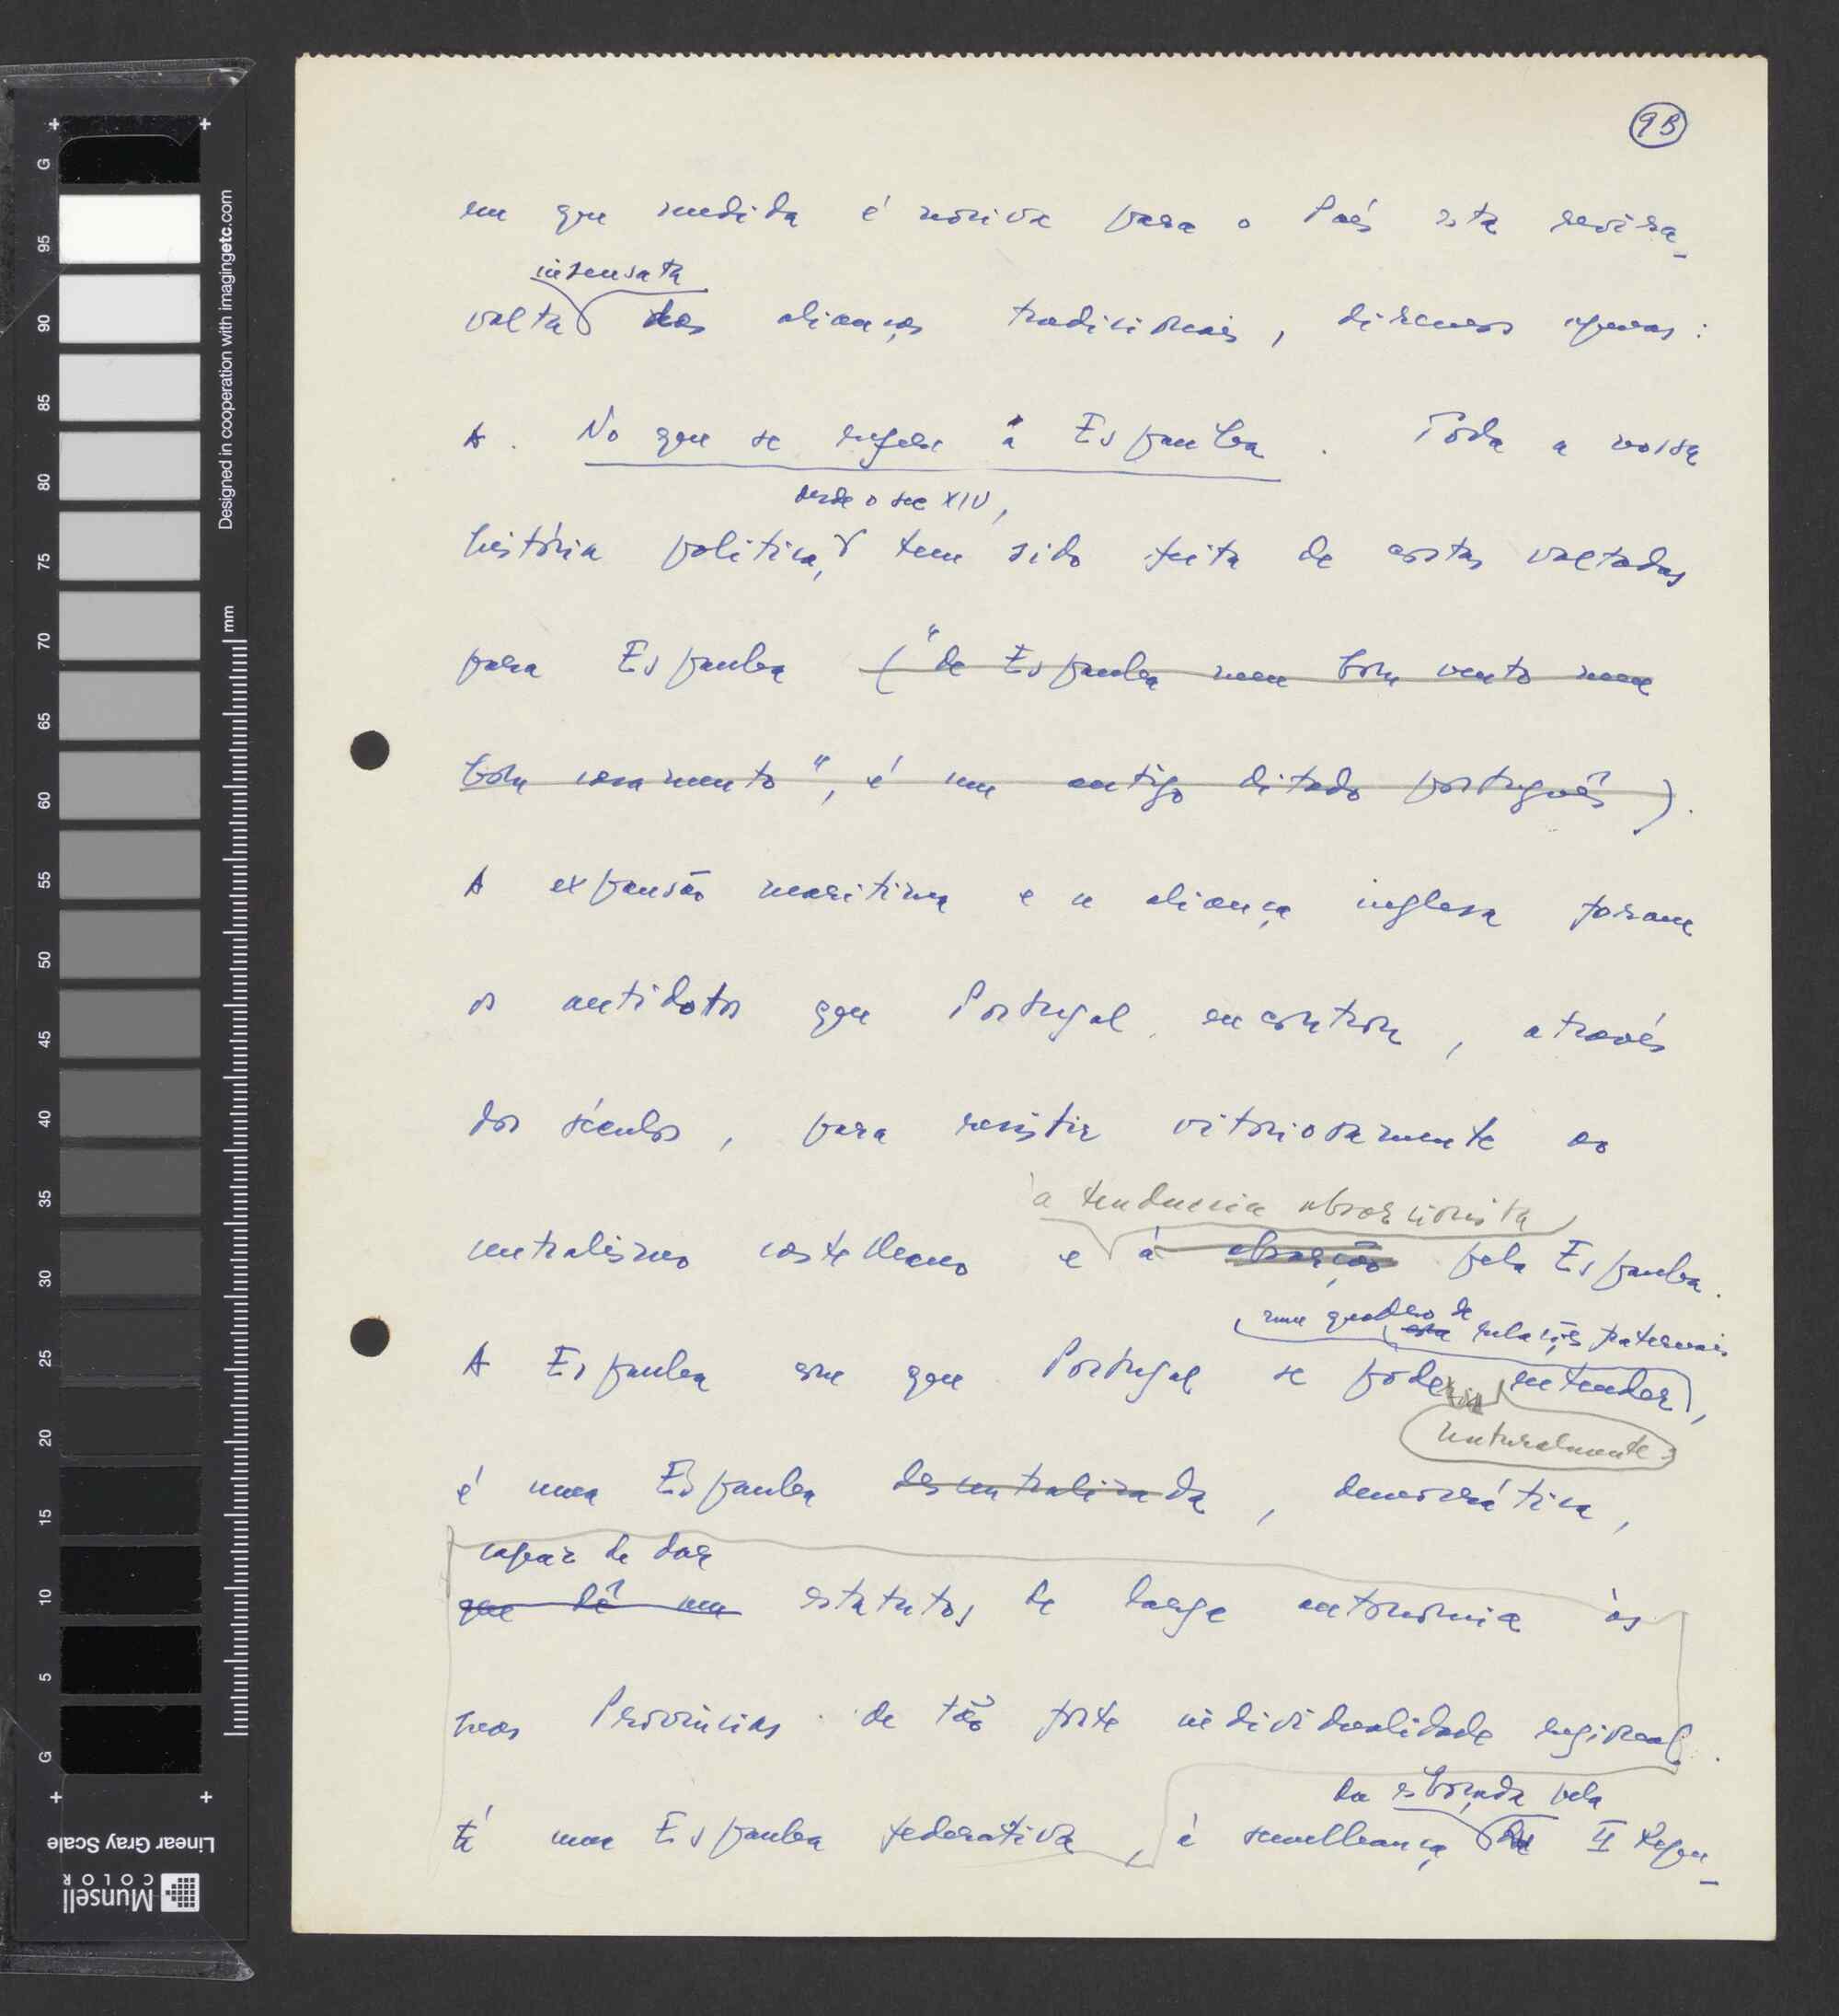 9B
em que medida é nociva para o País esta revira-
insensata
volta das alianças tradicionais, diremos apenas:
A. No que se refere à Espanha. Toda a nossa
desde o sec XIV,
história politica, tem sido feita de costas voltadas
para Espanha ("de Espanha nem bom vento nem
bom casamento", é um antigo ditado português).
A expansão maritima e a aliança inglesa foram
os antidotos que Portugal encontrou, através
dos séculos, para resistir vitoriosamente ao
à tendencia absorcionista
centralismo castelhano e à absorção pela Espanha.
num quadro de relações fraternais
A Espanha com que Portugal se poderia entender,
naturalmente
é uma Espanha descentralizada, democrática,
capaz de dar
que dê um estatutos de larga autonomia às
suas Provincias de tão forte individualidade regional.
É uma Espanha federativa, à semelhança da II Repu-
da esboçada pela
G 95 90 85 80 75 70 65 60 55 50 45 40 35 30 25 20 15 10 5 G
mm
Designed in cooperation with imagingetc.com
Linear Gray Scale
Munsell
COLOR